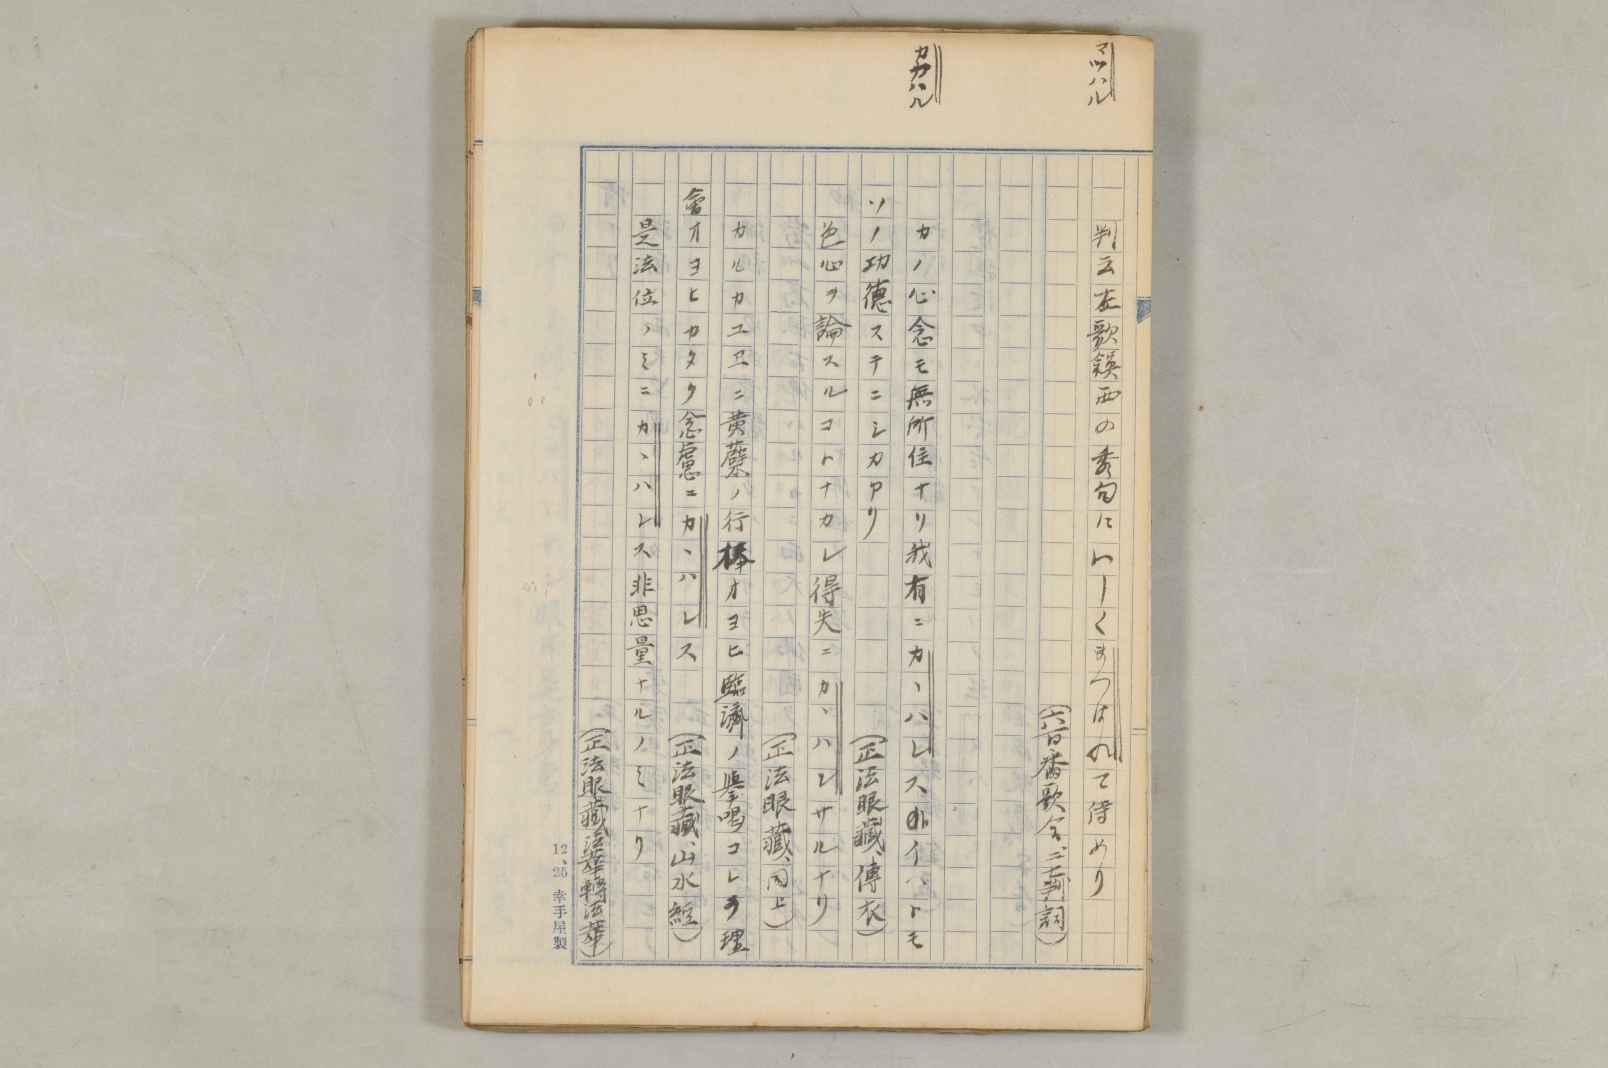 マツハル
判云左歌鎭西の秀句にわーくまつはれて侍めり
(六百番歌合、二、判詞)
カカハル
カノ心念モ無所住ナリ我有ニカヽハレス非イハトモ
ソノ功德ステニシカアリ
(正法眼藏、傳衣)
色心ヲ論スルコトナカレ得失ニカヽハレサルナリ
(正法眼藏、同上)
カルカユヱニ黄蘗ノ行棒オヨヒ臨濟ノ擧喝コレヲ理
會オヨヒカタク念慮ニカヽハレス
(正法眼藏、山水經)
是法位ノミニカヽハレス非思量ナルノミナリ
(正法眼藏、法華轉法華)
12、25 幸手屋製